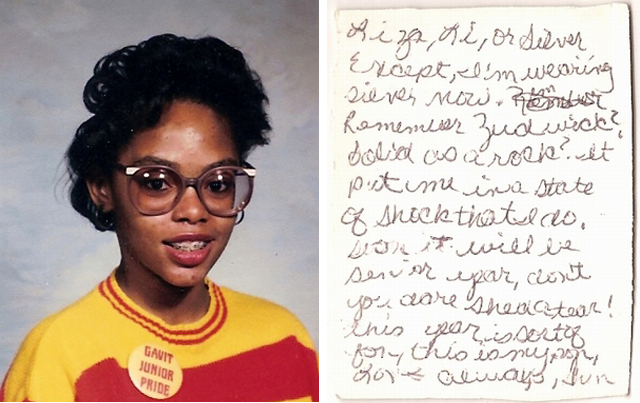 GAVIT
JUNIOR
PRIDE
Liza, Li, or Silver
Except, I'm wearing
silver now.
Rememer Ludwick?
Solid as a rock? It
put me in a state
of shock that I do.
soon it will be
senior year, don't
you dare shed a tear!
this year is sort of
for, this is my
Love always,